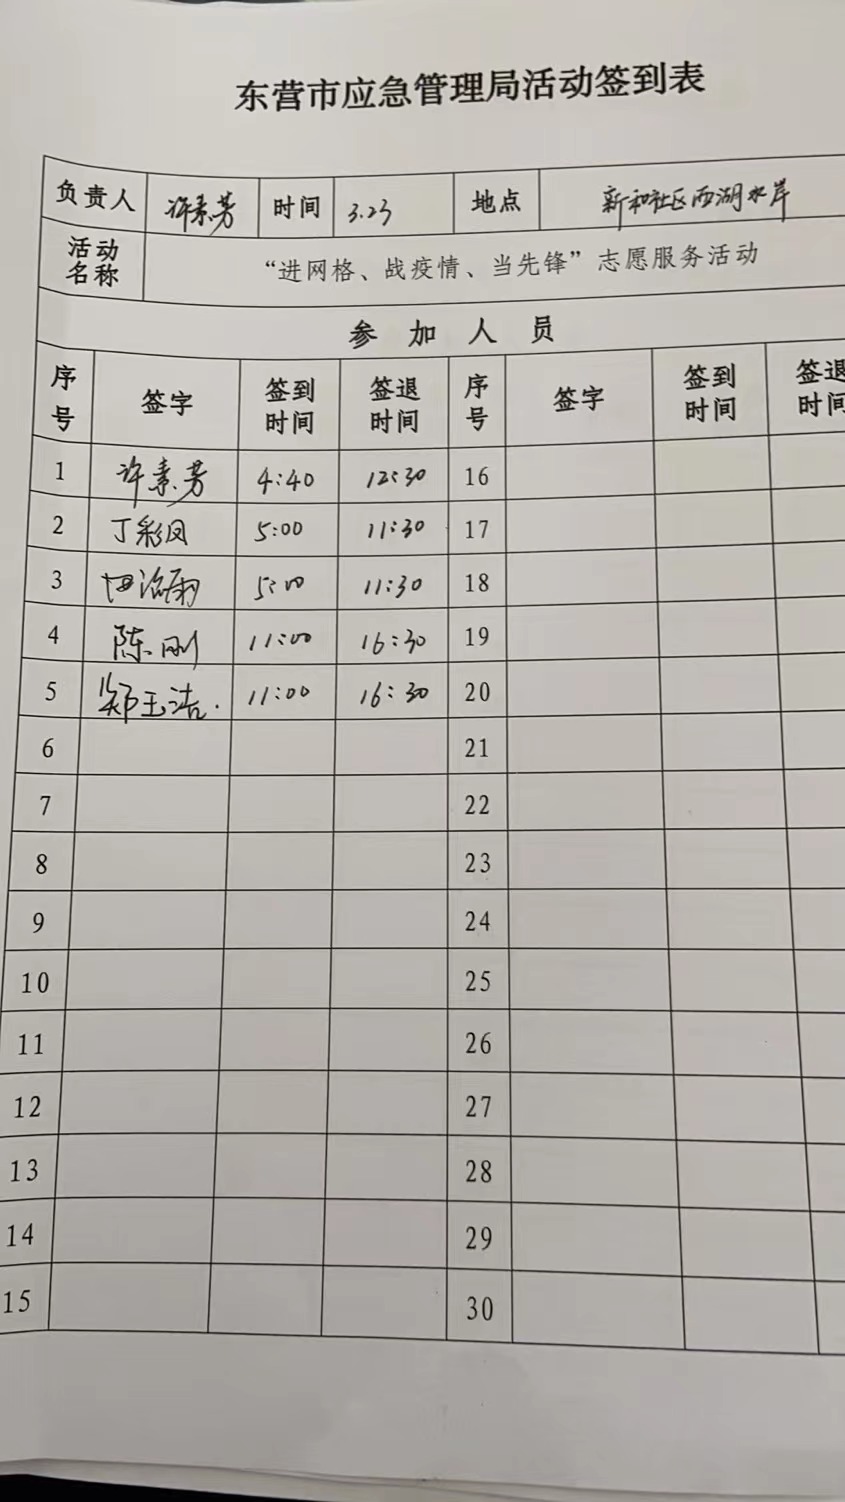 东营市应急管理局活动签到表
负责人 许素芳 时间 3.23 地点 新和社区西湖水岸
活动名称 “进网格、战疫情、当先锋”志愿服务活动
参加人员
序号 签字 签到时间 签退时间 序号 签字 签到时间 签退时间
1 许素芳 4:40 12:30 16
2 丁彩凤 5:00 11:30 17
3 5:00 11:30 18
4 陈刚 11:00 16:30 19
5 郑玉洁. 11:00 16:30 20
6 21
7 22
8 23
9 24
10 25
11 26
12 27
13 28
14 29
15 30